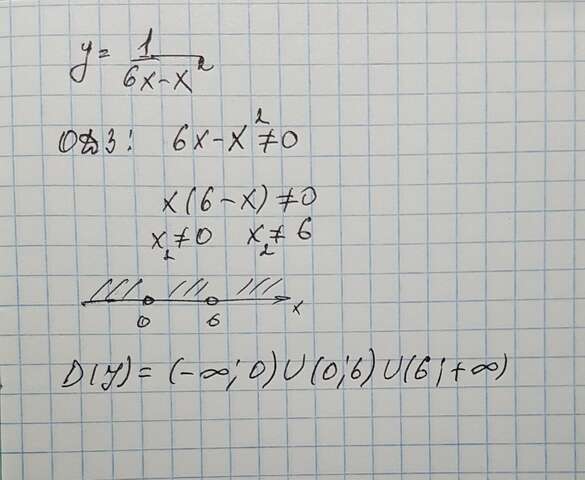 y = 1/(6x-x²)
ОДЗ: 6x-x²≠0
x(6-x)≠0
x₁≠0 x₂≠6
0 6 x
D(y) = (-∞; 0)∪(0;6)∪(6;+∞)